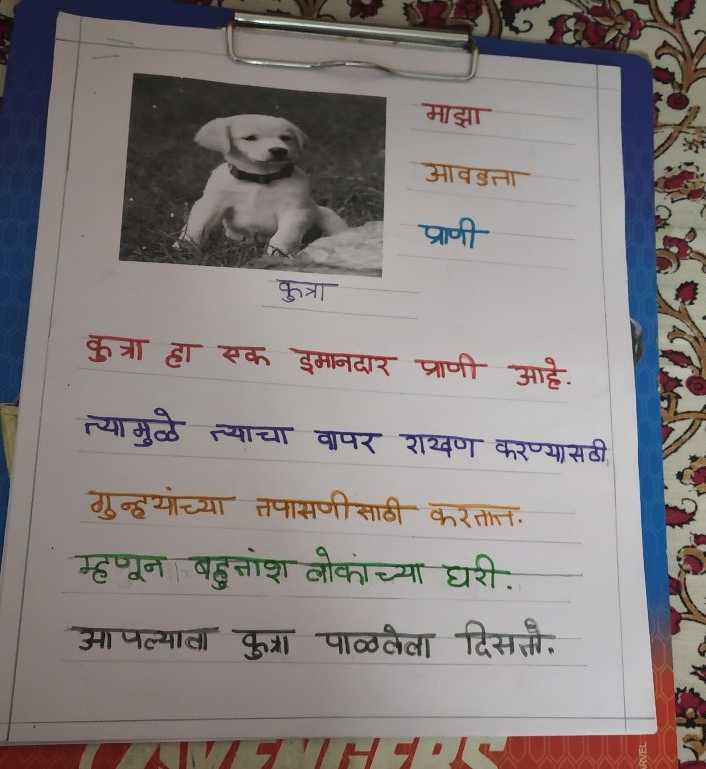 माझा
आवडता
प्राणी
कुत्रा
कुत्रा हा एक इमानदार प्राणी आहे.
त्यामुळे त्याचा वापर राखण करण्यासठी
गुन्हयांच्या तपासणीसाठी करतात.
म्हणून बहुतांश लोकांच्या घरी.
आपल्याला कुत्रा पाळलेला दिसतो.
AVENGERS